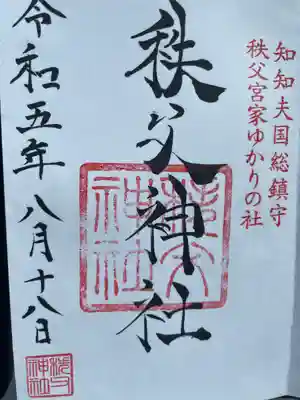 知知夫国総鎮守
秩父宮家ゆかりの社
秩父神社
令和五年八月十八日
秩父神社
秩父神社